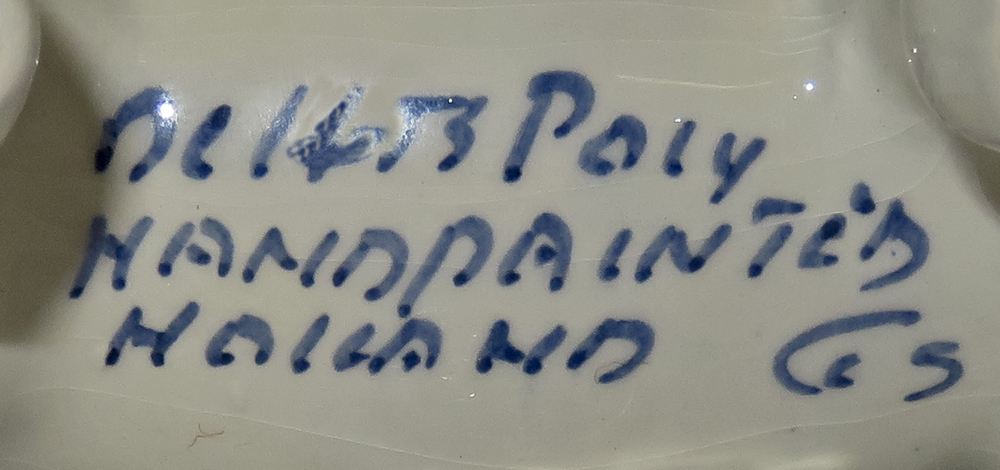 Delfts Poly
HANDPAINTED
HOLLAND Gs